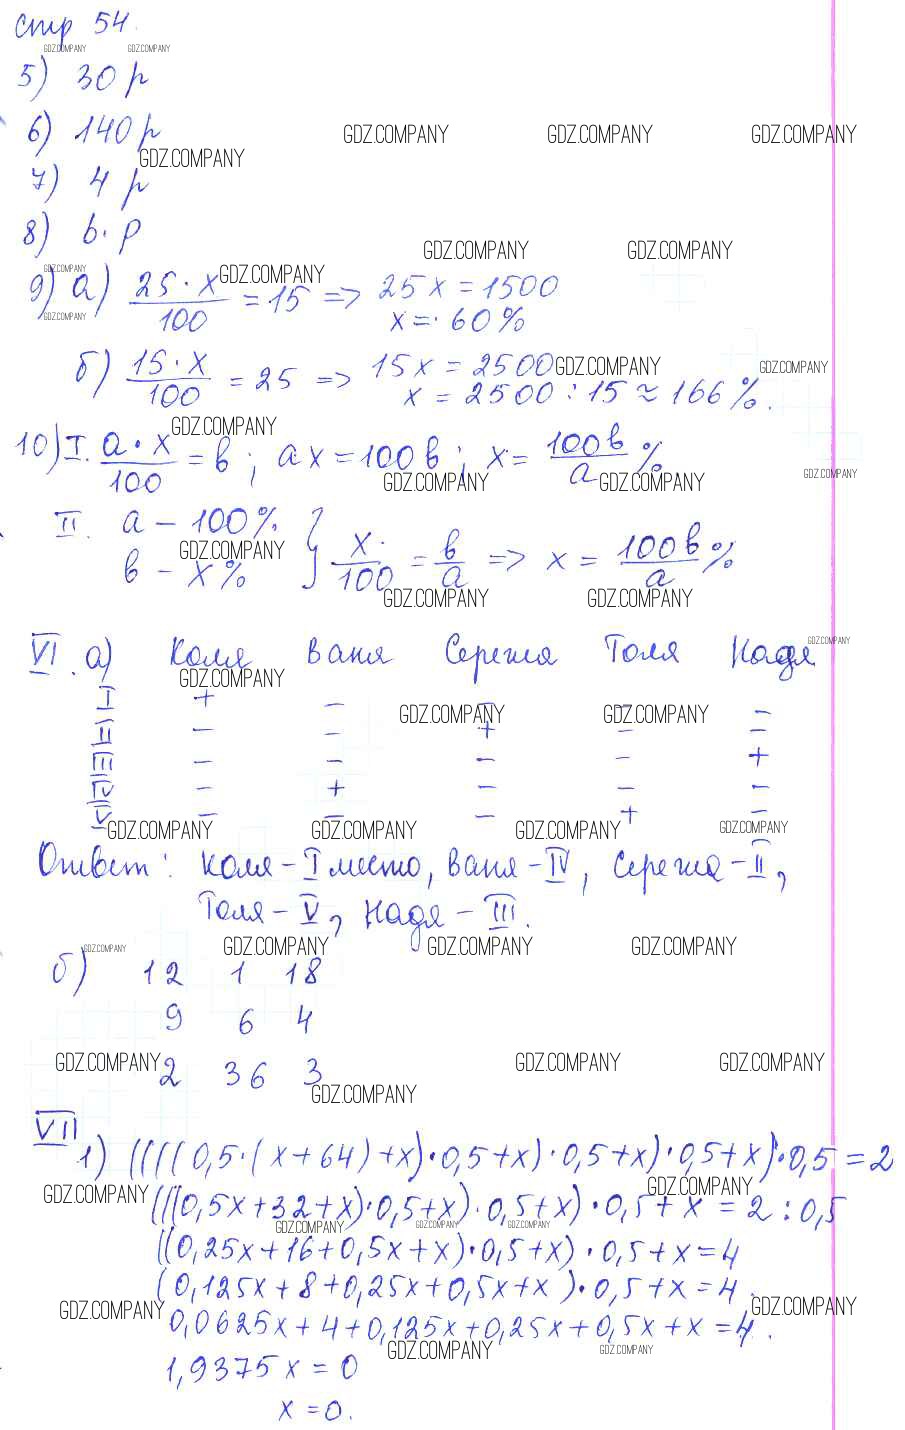 стр 54.
GDZ.COMPANY GDZ.COMPANY
5) 30 р
6) 140 р
GDZ.COMPANY GDZ.COMPANY GDZ.COMPANY
GDZ.COMPANY
7) 4 р
8) b · p
GDZ.COMPANY GDZ.COMPANY
GDZ.COMPANY GDZ.COMPANY
9) а) 25 · x / 100 = 15 => 25x = 1500
GDZ.COMPANY
x = 60%
б) 15 · x / 100 = 25 => 15x = 2500
GDZ.COMPANY GDZ.COMPANY
x = 2500 : 15 ≈ 166%.
GDZ.COMPANY
10) I. a · x / 100 = b ; ax = 100b ; x = 100b / a %
GDZ.COMPANY GDZ.COMPANY GDZ.COMPANY
II. a – 100%
GDZ.COMPANY
b – x% } x / 100 = b / a => x = 100b / a %
GDZ.COMPANY GDZ.COMPANY
VI. а) Коля Ваня Сережа Толя Надя
GDZ.COMPANY GDZ.COMPANY
I + – – – –
GDZ.COMPANY GDZ.COMPANY
II – – + – –
III – – – – +
IV – + – – –
V – – – + –
GDZ.COMPANY GDZ.COMPANY GDZ.COMPANY GDZ.COMPANY
Ответ: Коля – I место, Ваня – IV, Сережа – II,
Толя – V, Надя – III.
GDZ.COMPANY GDZ.COMPANY GDZ.COMPANY GDZ.COMPANY
б) 12 1 18
9 6 4
GDZ.COMPANY GDZ.COMPANY GDZ.COMPANY
2 36 3
GDZ.COMPANY
VII
1) (((((0,5·(x+64)+x)·0,5+x)·0,5+x)·0,5+x)·0,5=2
GDZ.COMPANY GDZ.COMPANY
(((0,5x+32+x)·0,5+x)·0,5+x)·0,5+x=2:0,5
GDZ.COMPANY GDZ.COMPANY GDZ.COMPANY
((0,25x+16+0,5x+x)·0,5+x)·0,5+x=4
(0,125x+8+0,25x+0,5x+x)·0,5+x=4.
GDZ.COMPANY GDZ.COMPANY
0,0625x+4+0,125x+0,25x+0,5x+x=4.
GDZ.COMPANY GDZ.COMPANY
1,9375x=0
x=0.